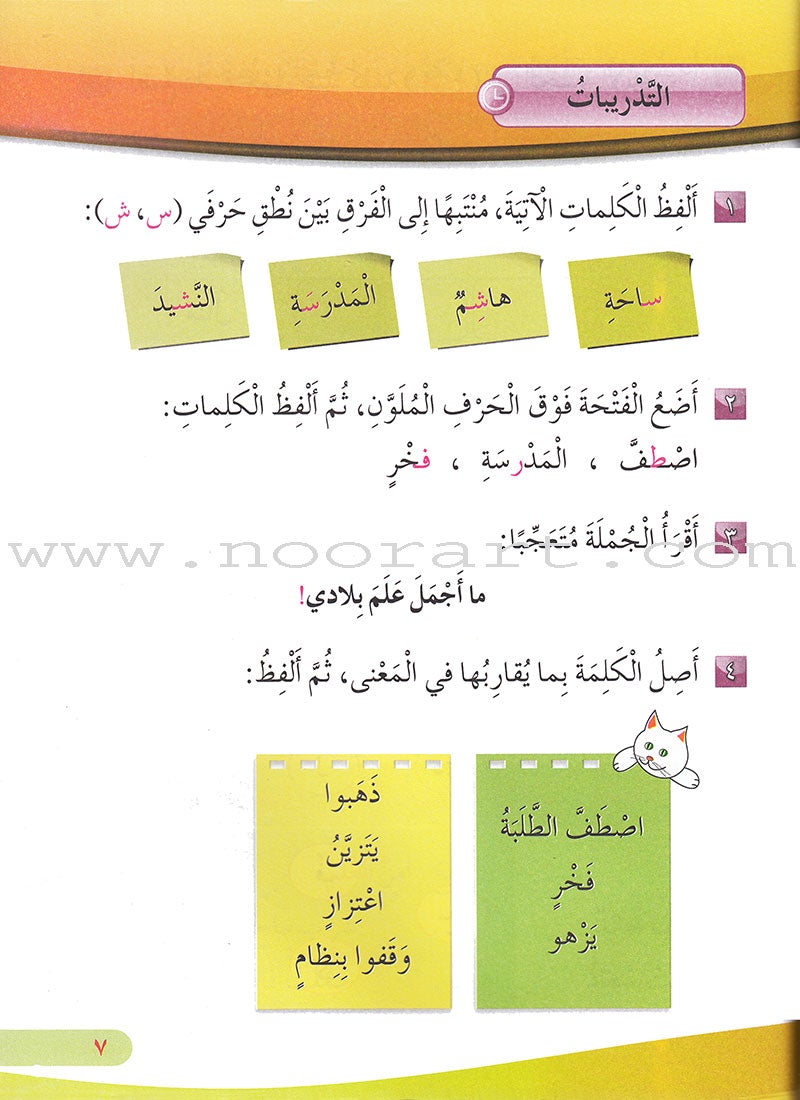 التَّدْريباتُ
١ أَلْفِظُ الْكَلِماتِ الْآتِيَةَ، مُنْتَبِهًا إلى الْفَرْقِ بَيْنَ نُطْقِ حَرْفَي (س، ش):
ساحَةِ هاشِمٌ الْمَدْرَسَةِ النَّشيدَ
٢ أَضَعُ الْفَتْحَةَ فَوْقَ الْحَرْفِ الْمُلَوَّنِ، ثُمَّ أَلْفِظُ الْكَلِماتِ:
اصْطفَّ ، الْمَدْرسَةِ ، فخْرٍ
٣ أَقْرَأُ الْجُمْلَةَ مُتَعَجِّبًا:
www.noorart.com
ما أَجْمَلَ عَلَمَ بِلادي!
٤ أَصِلُ الْكَلِمَةَ بِما يُقارِبُها في الْمَعْنى، ثُمَّ أَلْفِظُ:
اصْطَفَّ الطَّلَبَةُ
فَخْرٍ
يَزْهو
ذَهَبوا
يَتَزيَّنُ
اعْتِزازٍ
وَقَفوا بِنِظامٍ
٧